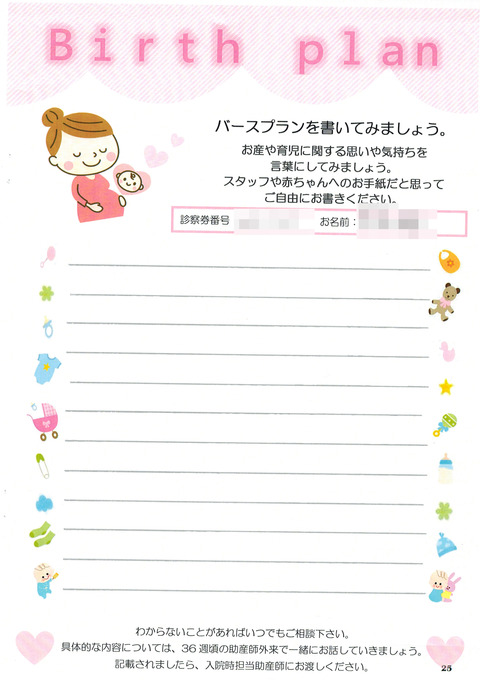 Birth plan
バースプランを書いてみましょう。
お産や育児に関する思いや気持ちを
言葉にしてみましょう。
スタッフや赤ちゃんへのお手紙だと思って
ご自由にお書きください。
診察券番号 お名前：
わからないことがあればいつでもご相談下さい。
具体的な内容については、36週頃の助産師外来で一緒にお話していきましょう。
記載されましたら、入院時担当助産師にお渡しください。
25